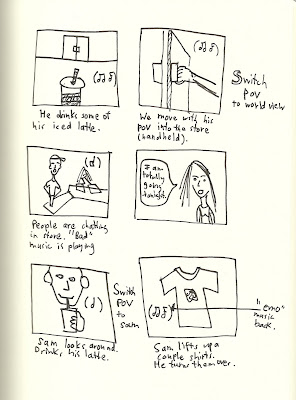 He drinks some of
his iced latte.
We move with his
POV into the store
(handheld).
Switch
POV
to world view
People are chatting
in store. "Bad"
music is playing
I am
totally
going
tonight.
Sam looks around.
Drinks his latte.
Switch
POV
to
Sam
Sam lifts up a
couple shirts.
He turns them over.
"emo"
music
back.